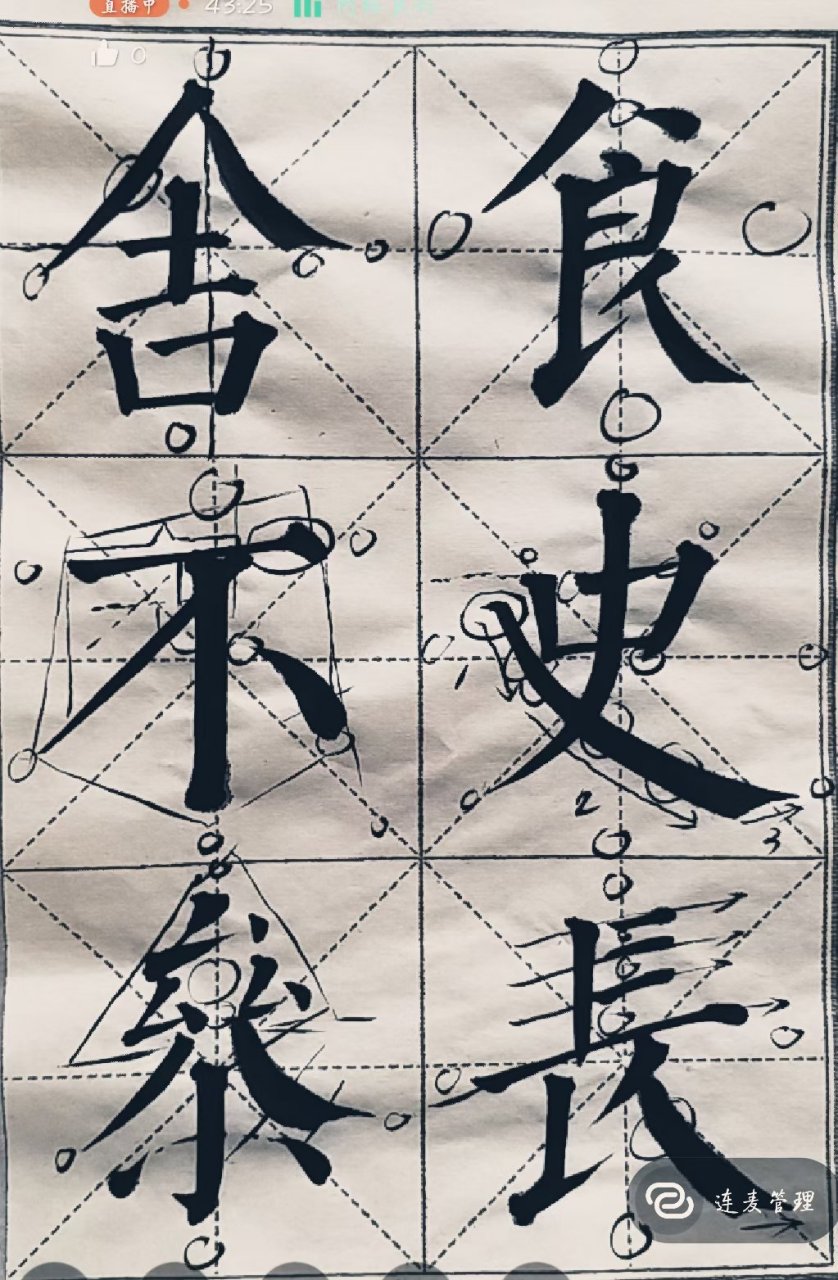 直播中 43:25
0
食史長
舎不叅
1
2
3
连麦管理